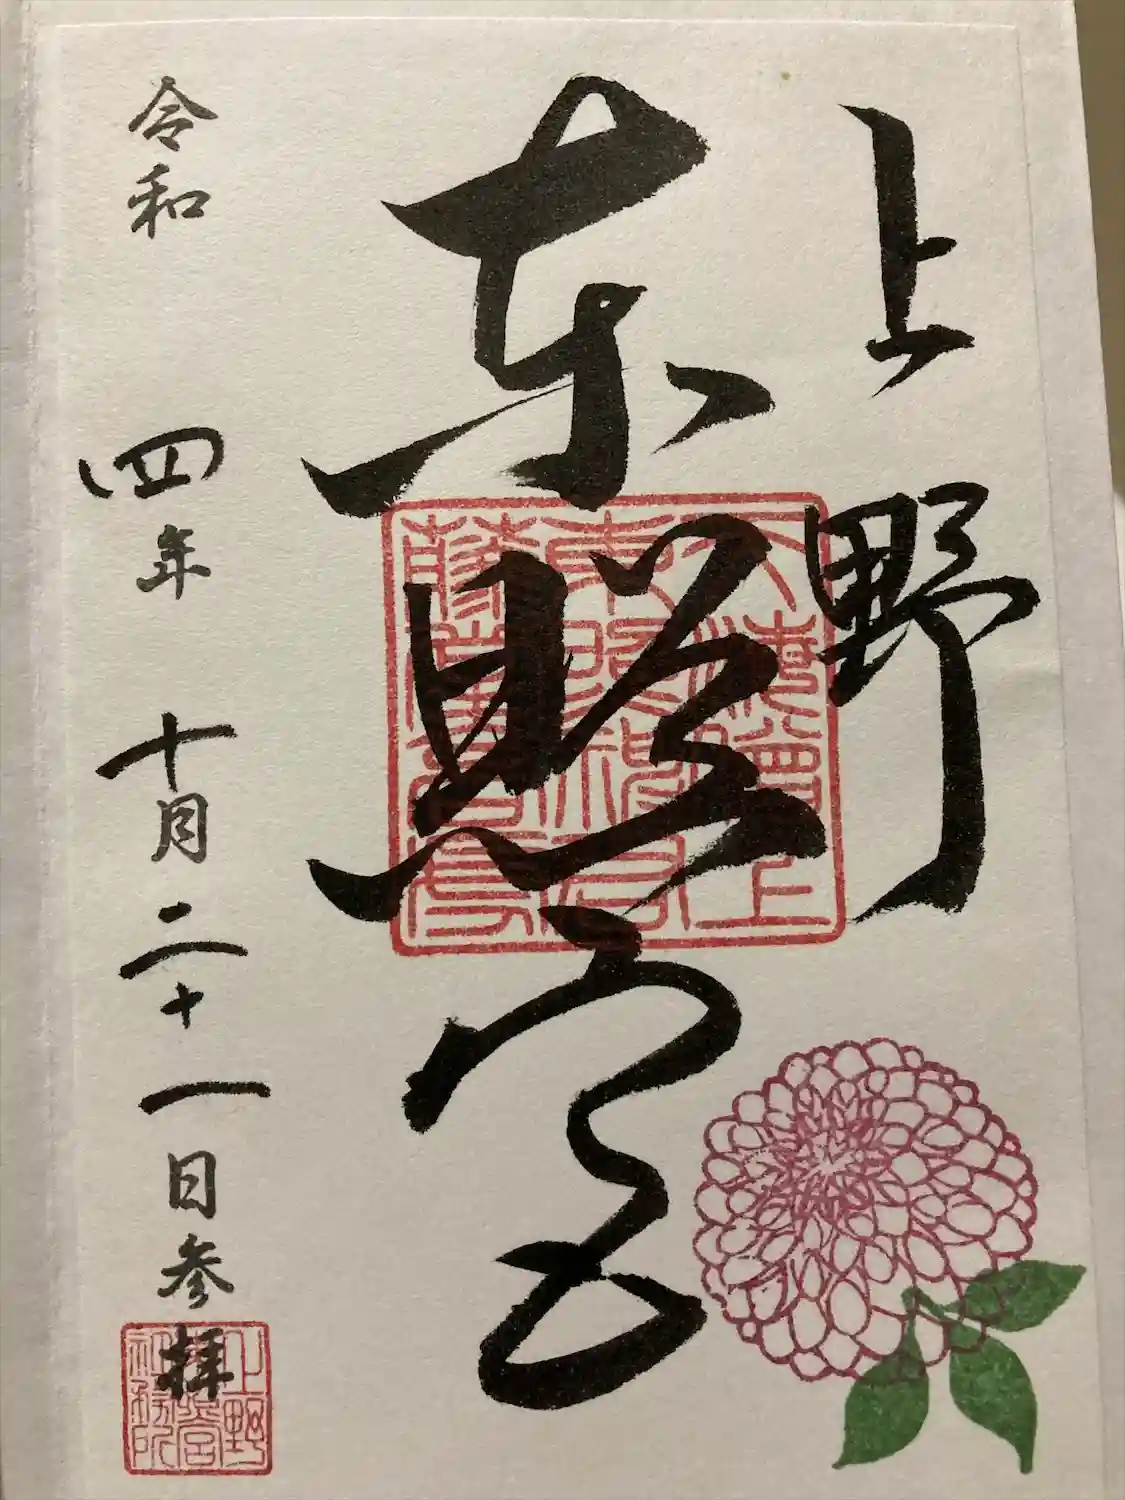 上野
東照宮
令和四年十月二十一日参拝
上野
東照宮
社務所